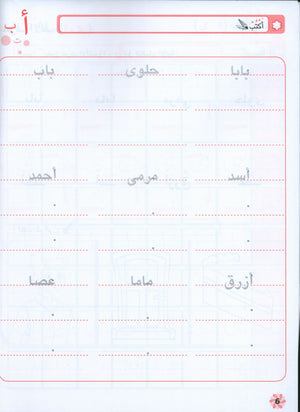 أكتب أ ب ت
بابا حلوى باب
أسد مرمى أحمد
أزرق ماما عصا
6